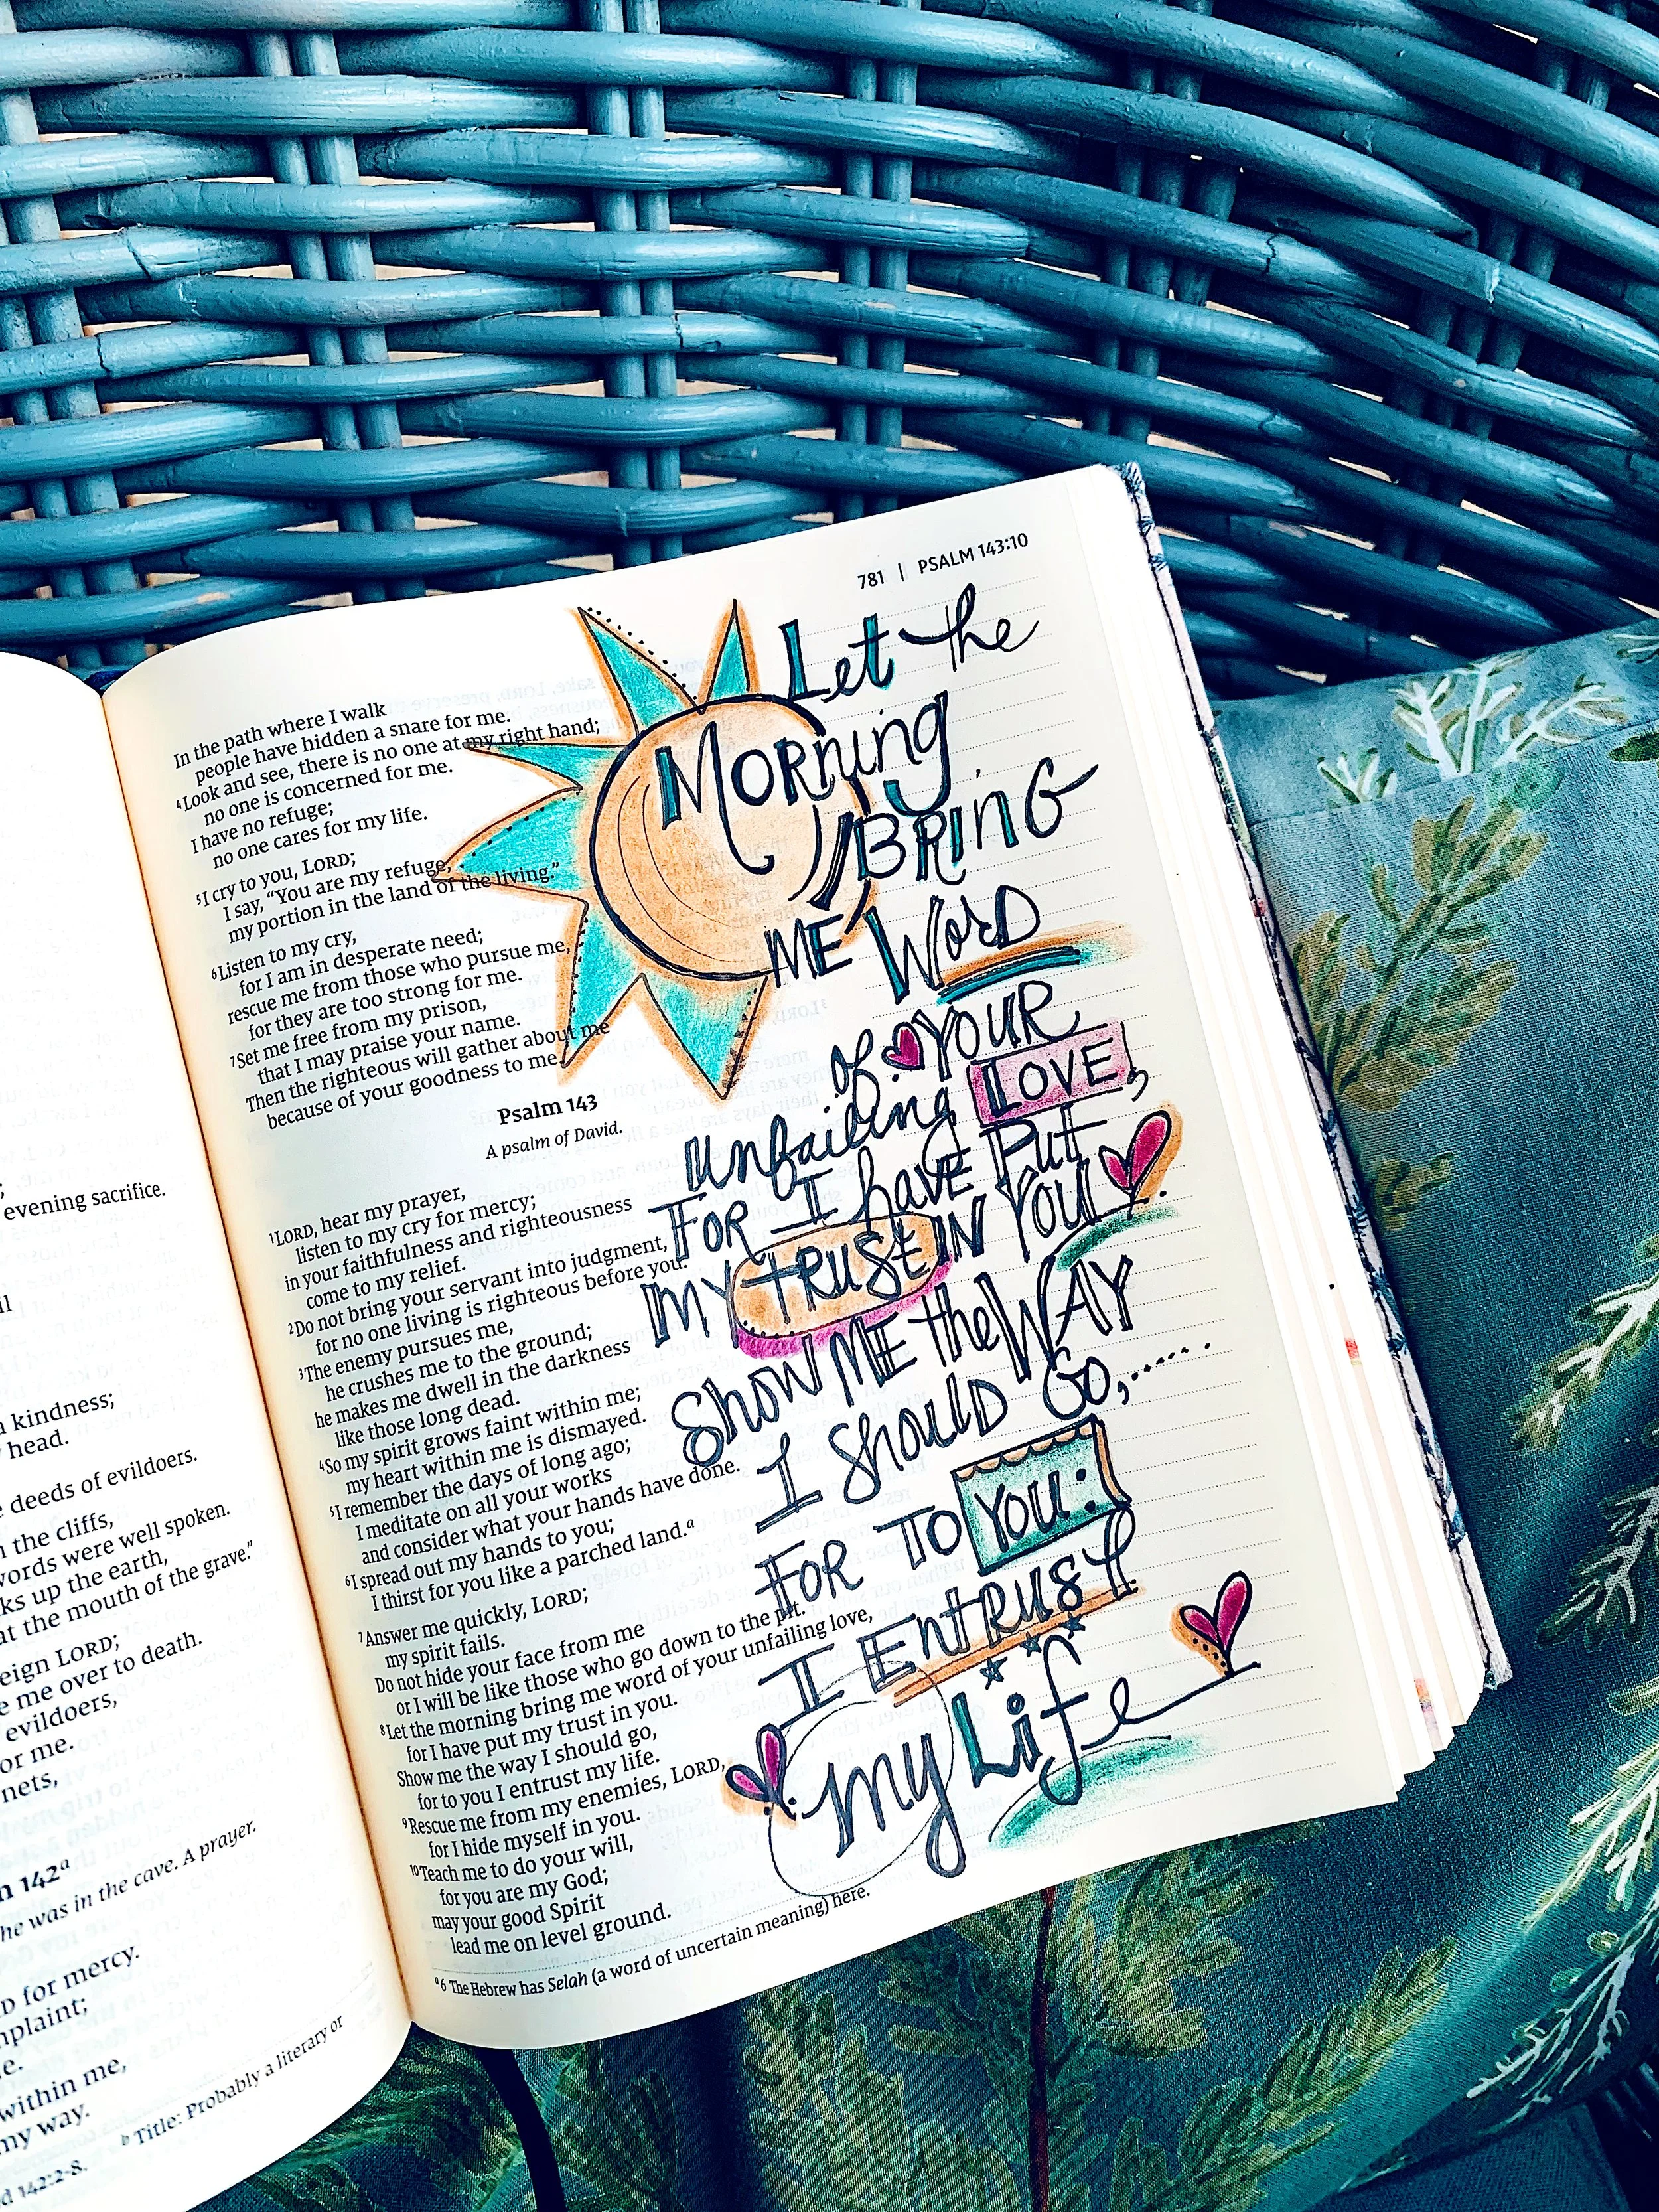 evening sacrifice.
kindness;
head.
deeds of evildoers.
the cliffs,
words were well spoken.
up the earth,
at the mouth of the grave.”
LORD;
me over to death.
evildoers,
for me.
nets,
142ᵃ
he was in the cave. A prayer.
for mercy.
within me,
my way.
ᵇ Title: Probably a literary or
142:2-8.
781 | PSALM 143:10
In the path where I walk
people have hidden a snare for me.
⁴Look and see, there is no one at my right hand;
no one is concerned for me.
I have no refuge;
no one cares for my life.
⁵I cry to you, LORD;
I say, “You are my refuge,
my portion in the land of the living.”
⁶Listen to my cry,
for I am in desperate need;
rescue me from those who pursue me,
for they are too strong for me.
⁷Set me free from my prison,
that I may praise your name.
Then the righteous will gather about me
because of your goodness to me.
Psalm 143
A psalm of David.
¹LORD, hear my prayer,
listen to my cry for mercy;
in your faithfulness and righteousness
come to my relief.
²Do not bring your servant into judgment,
for no one living is righteous before you.
³The enemy pursues me,
he crushes me to the ground;
he makes me dwell in the darkness
like those long dead.
⁴So my spirit grows faint within me;
my heart within me is dismayed.
⁵I remember the days of long ago;
I meditate on all your works
and consider what your hands have done.
⁶I spread out my hands to you;
I thirst for you like a parched land.ᵃ
⁷Answer me quickly, LORD;
my spirit fails.
Do not hide your face from me
or I will be like those who go down to the pit.
⁸Let the morning bring me word of your unfailing love,
for I have put my trust in you.
Show me the way I should go,
for to you I entrust my life.
⁹Rescue me from my enemies, LORD,
for I hide myself in you.
¹⁰Teach me to do your will,
for you are my God;
may your good Spirit
lead me on level ground.
ᵃ6 The Hebrew has Selah (a word of uncertain meaning) here.
Let the
Morning
BRinG
ME Word
of YOUR
Unfailing LOVE,
FOR I have Put
MY TRUST IN YOU.
Show ME the WAY
I Should Go,......
FOR TO YOU:
I EntRUST
My Life